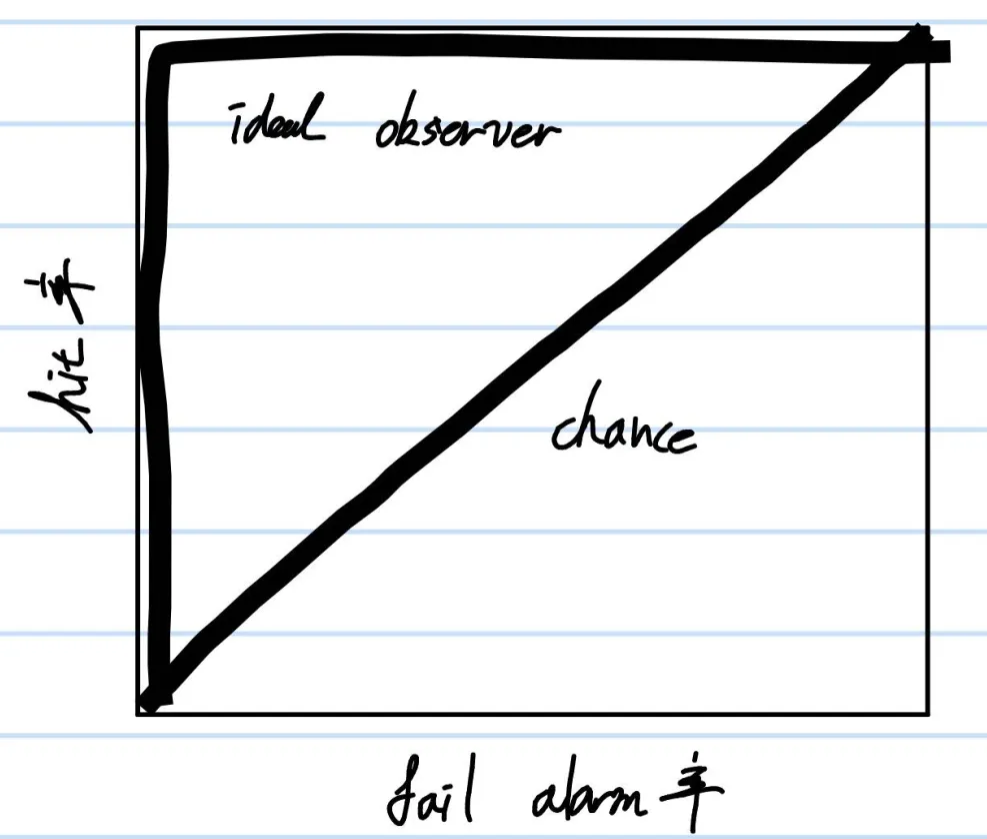 ideal observer
hit 率
chance
fail alarm 率